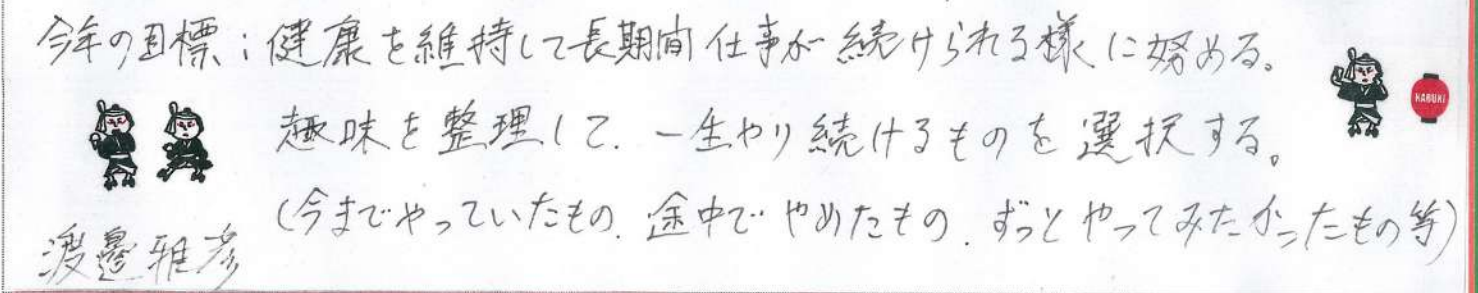 今年の目標；健康を維持して長期間仕事が続けられる様に努める。
趣味を整理して、一生やり続けるものを選択する。
（今までやっていたもの、途中でやめたもの、ずっとやってみたかったもの等）
渡邊雅彦
KABUKI